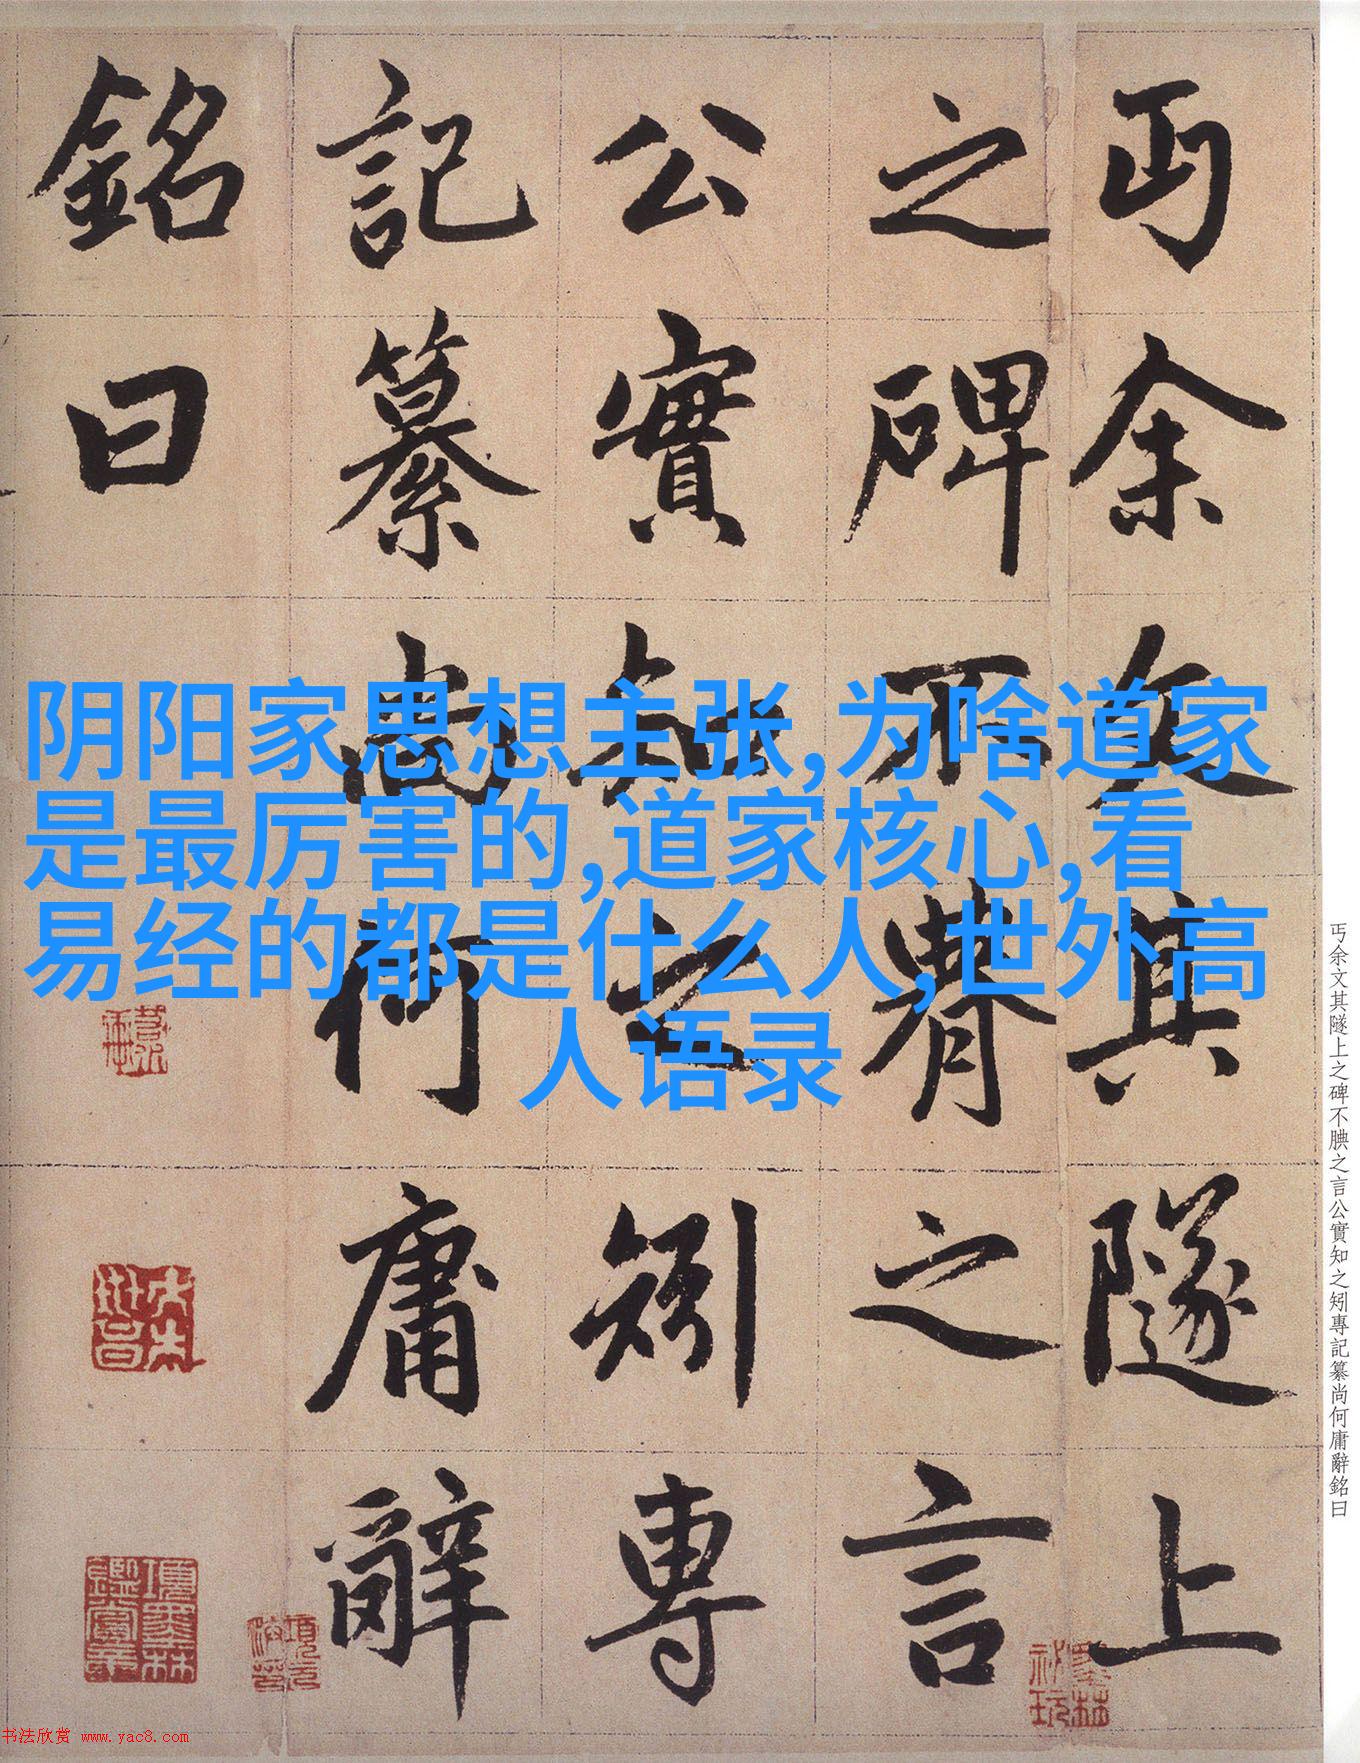 丐余文其隧上
之碑不腆之言
公實知之矧專
記纂尚何庸辭
銘曰
阴阳家思想主张,为啥道家
是最厉害的,道家核心,看
易经的都是什么人,世外高
人语录
丐余文其隧上之碑不腆之言公實知之矧專記纂尚何庸辭銘曰
項墨林鑑賞章
书法欣赏 www.yac8.com